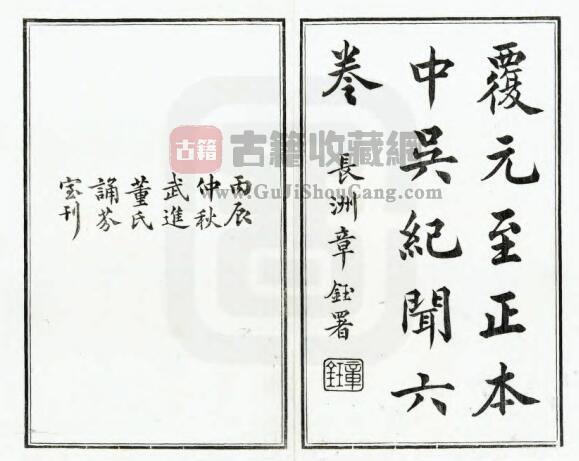 覆元至正本
中吳紀聞六
卷
長洲章鈺署
章鈺
丙辰
仲秋
武進
董氏
誦芬
室刊
古籍
古籍收藏網
www.GuJiShouCang.com